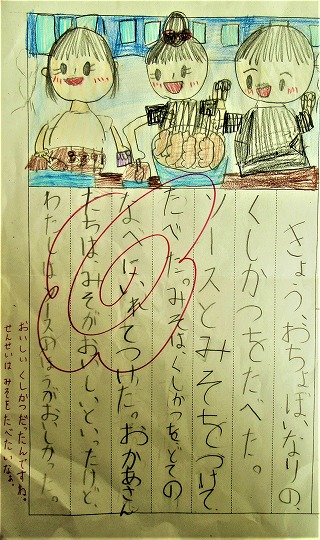 きょう、おちょぼいなりの、
くしかつをたべた。
ソースとみそをつけて
たべた。みそは、くしかつを、どての
なべにいれてつけた。おかあさん
たちは、みそがおいしいといったけど、
わたしはソースのほうがおいしかった。
おいしいくしかつだったんですね。
せんせいは みそをたべたいなぁ。